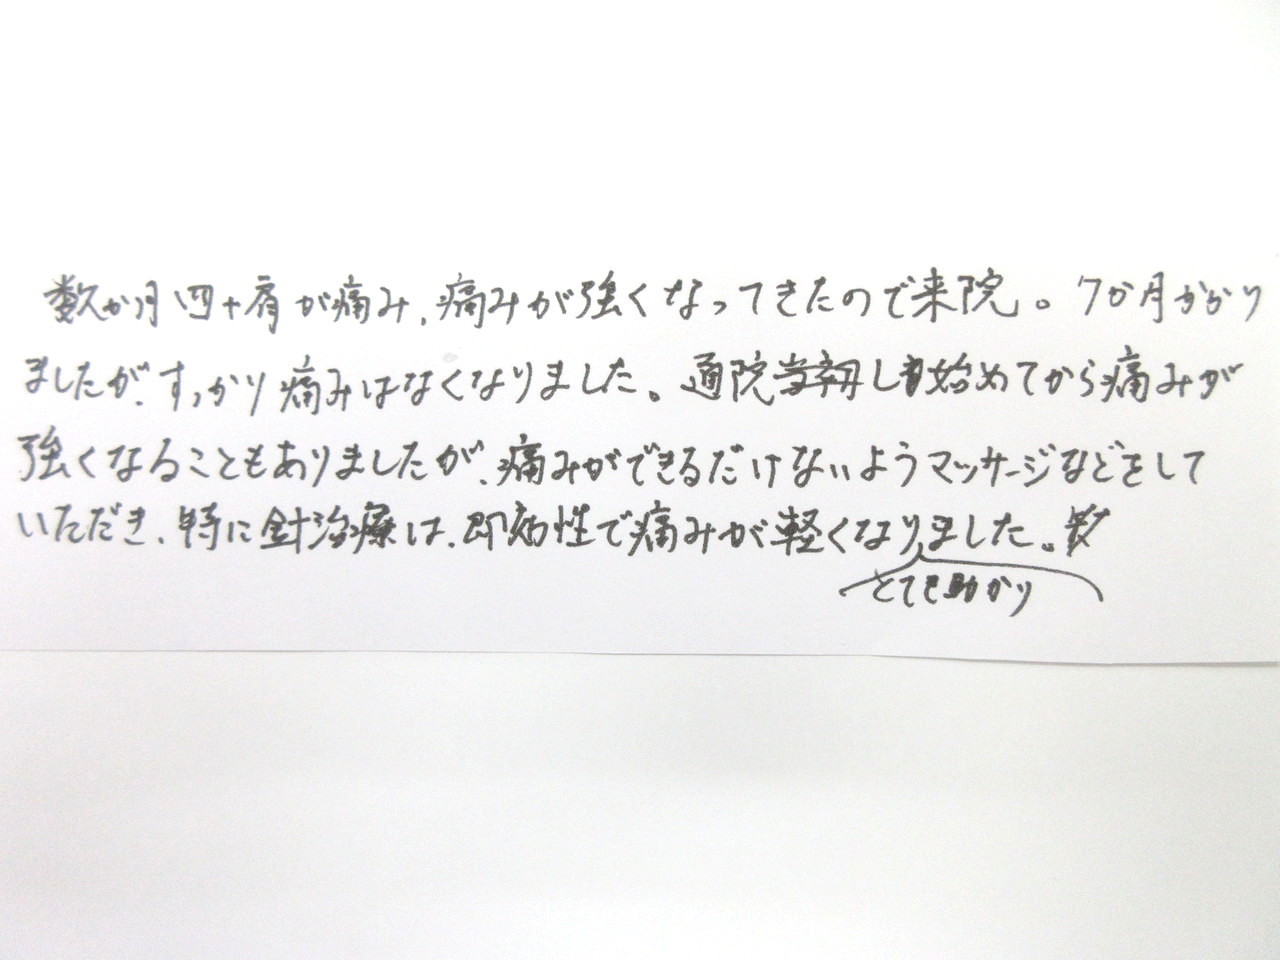 数か月四十肩が痛み、痛みが強くなってきたので来院。7か月かかり
ましたが、すっかり痛みはなくなりました。通院し始めてから痛みが
強くなることもありましたが、痛みができるだけないようマッサージなどをして
いただき、特に針治療は、即効性で痛みが軽くなりました。
とても助かり